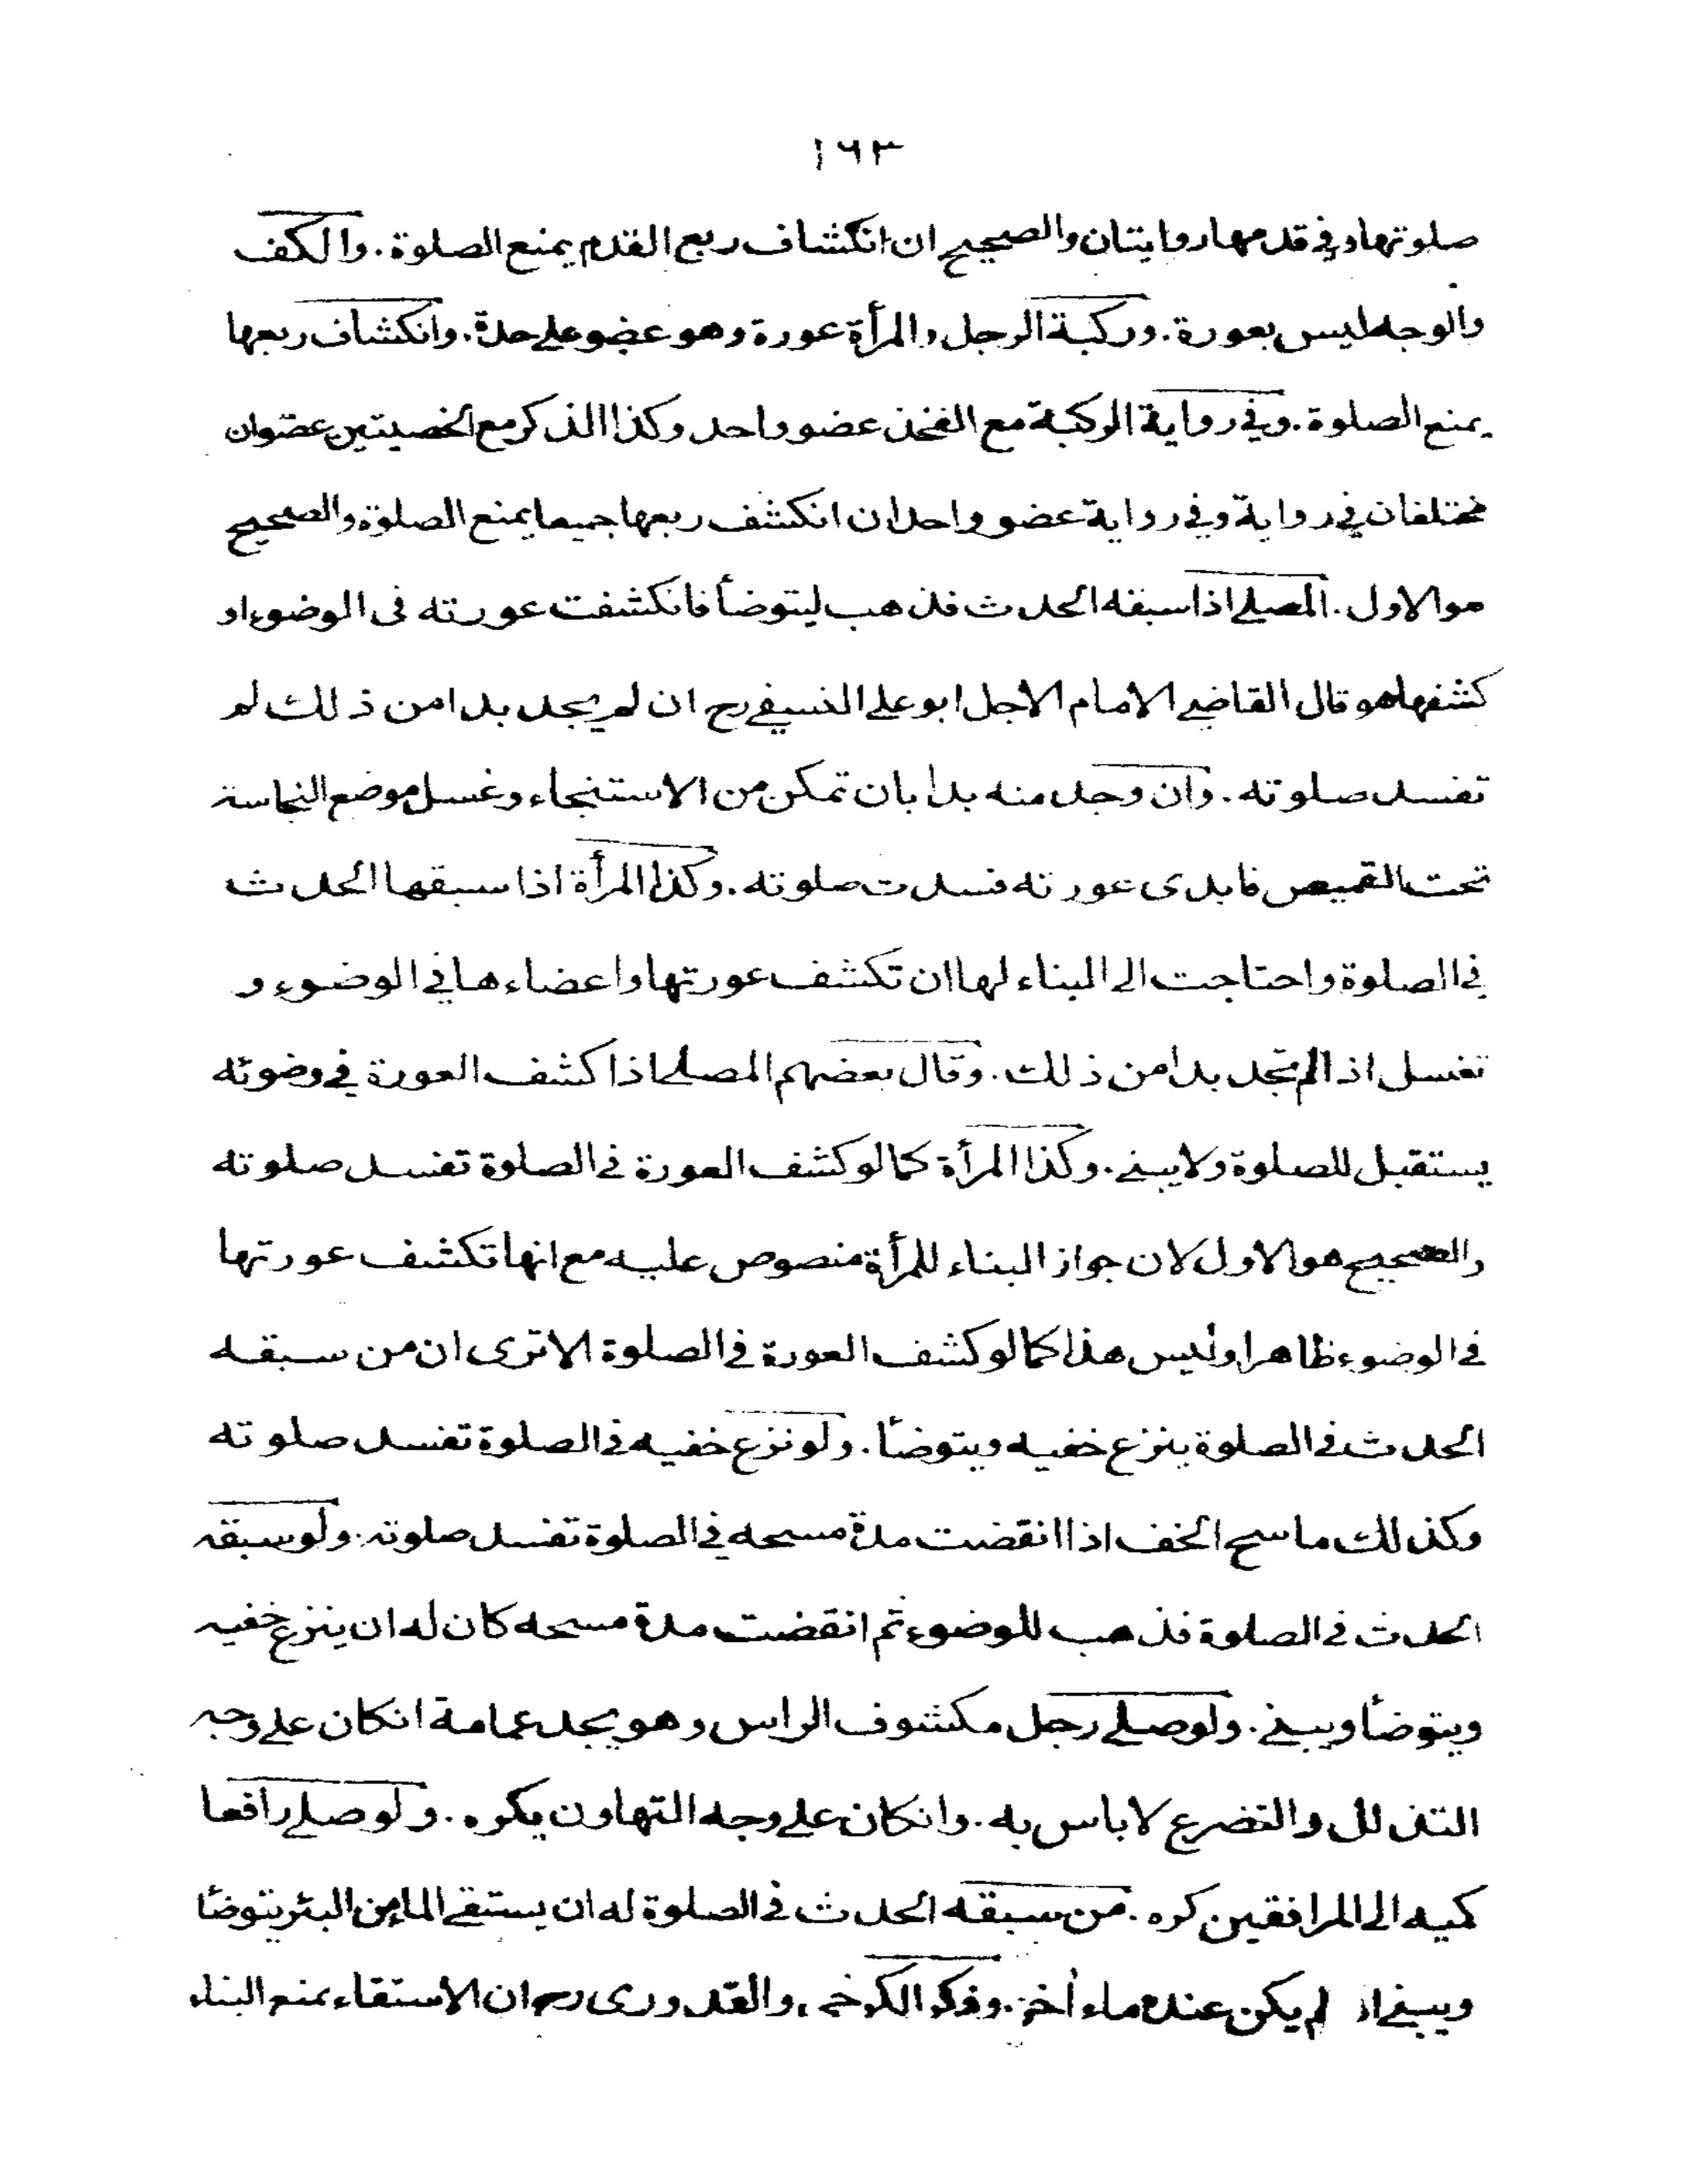 ١٦٣
صلوتها وفي قدمها روايتان والصحيح ان انكشاف ربع القدم يمنع الصلوة. والكف
والوجه ليس بعورة. وركبة الرجل والمرأة عورة وهو عضو على حدة. وانكشاف ربعها
يمنع الصلوة. وفي رواية الركبة مع الفخذ عضو واحد وكذا الذكر مع الخصيتين عضوان
مختلفان في رواية وفي رواية عضو واحد ان انكشف ربعها جميعا يمنع الصلوة والصحيح
هو الاول. المصلي اذا سبقه الحدث فذهب ليتوضأ فانكشفت عورته فى الوضوء او
كشفها هو قال القاضي الامام الاجل ابو علي النسفي رح ان لم يجد بدا من ذلك لم
تفسد صلوته. وان وجد منه بدا بان تمكن من الاستنجاء وغسل موضع النجاسة
تحت القميص فابدى عورته فسدت صلوته. وكذا المرأة اذا سبقها الحدث
في الصلوة واحتاجت الى البناء لها ان تكشف عورتها واعضاءها في الوضوء و
تغسل اذا لم تجد بدا من ذلك. وقال بعضهم المصلي اذا كشف العورة في وضوئه
يستقبل للصلوة ولا يبني. وكذا المرأة كما لو كشف العورة في الصلوة تفسد صلوته
والصحيح هو الاول لان جواز البناء للمرأة منصوص عليه مع انها تكشف عورتها
في الوضوء ظاهرا وليس هذا كما لو كشف العورة في الصلوة الا ترى ان من سبقه
الحدث في الصلوة ينزع خفيه ويتوضأ. ولو نزع خفيه في الصلوة تفسد صلوته
وكذلك ماسح الخف اذا انقضت مدة مسحه في الصلوة تفسد صلوته. ولو سبقه
الحدث في الصلوة فذهب للوضوء ثم انقضت مدة مسحه كان له ان ينزع خفيه
ويتوضأ ويبني. ولو صلى رجل مكشوف الراس وهو يجد عمامة انكان على وجه
التذلل والتضرع لا باس به. وانكان على وجه التهاون يكره. ولو صلى رافعا
كميه الى المرافقين كره. من سبقه الحدث في الصلوة له ان يستقي الماء من البئر يتوضأ
ويبني ان لم يكن عنده ماء أخر. وذكر الكرخي والقدورى رح ان الاستقاء يمنع البناء